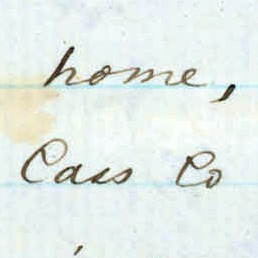 home,
Cass Co